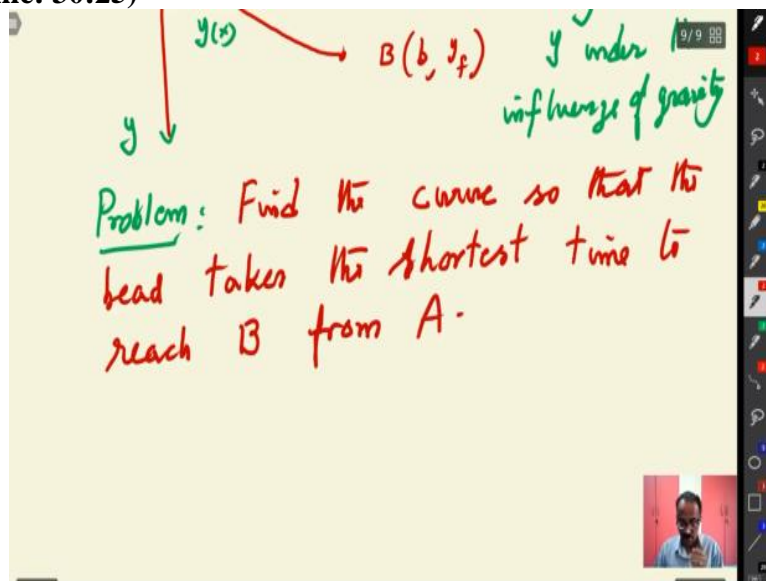 y(x)
B(b, y_f)
y under
9/9
influenze of gravity
y
Problem: Find the curve so that the
bead takes the shortest time to
reach B from A.